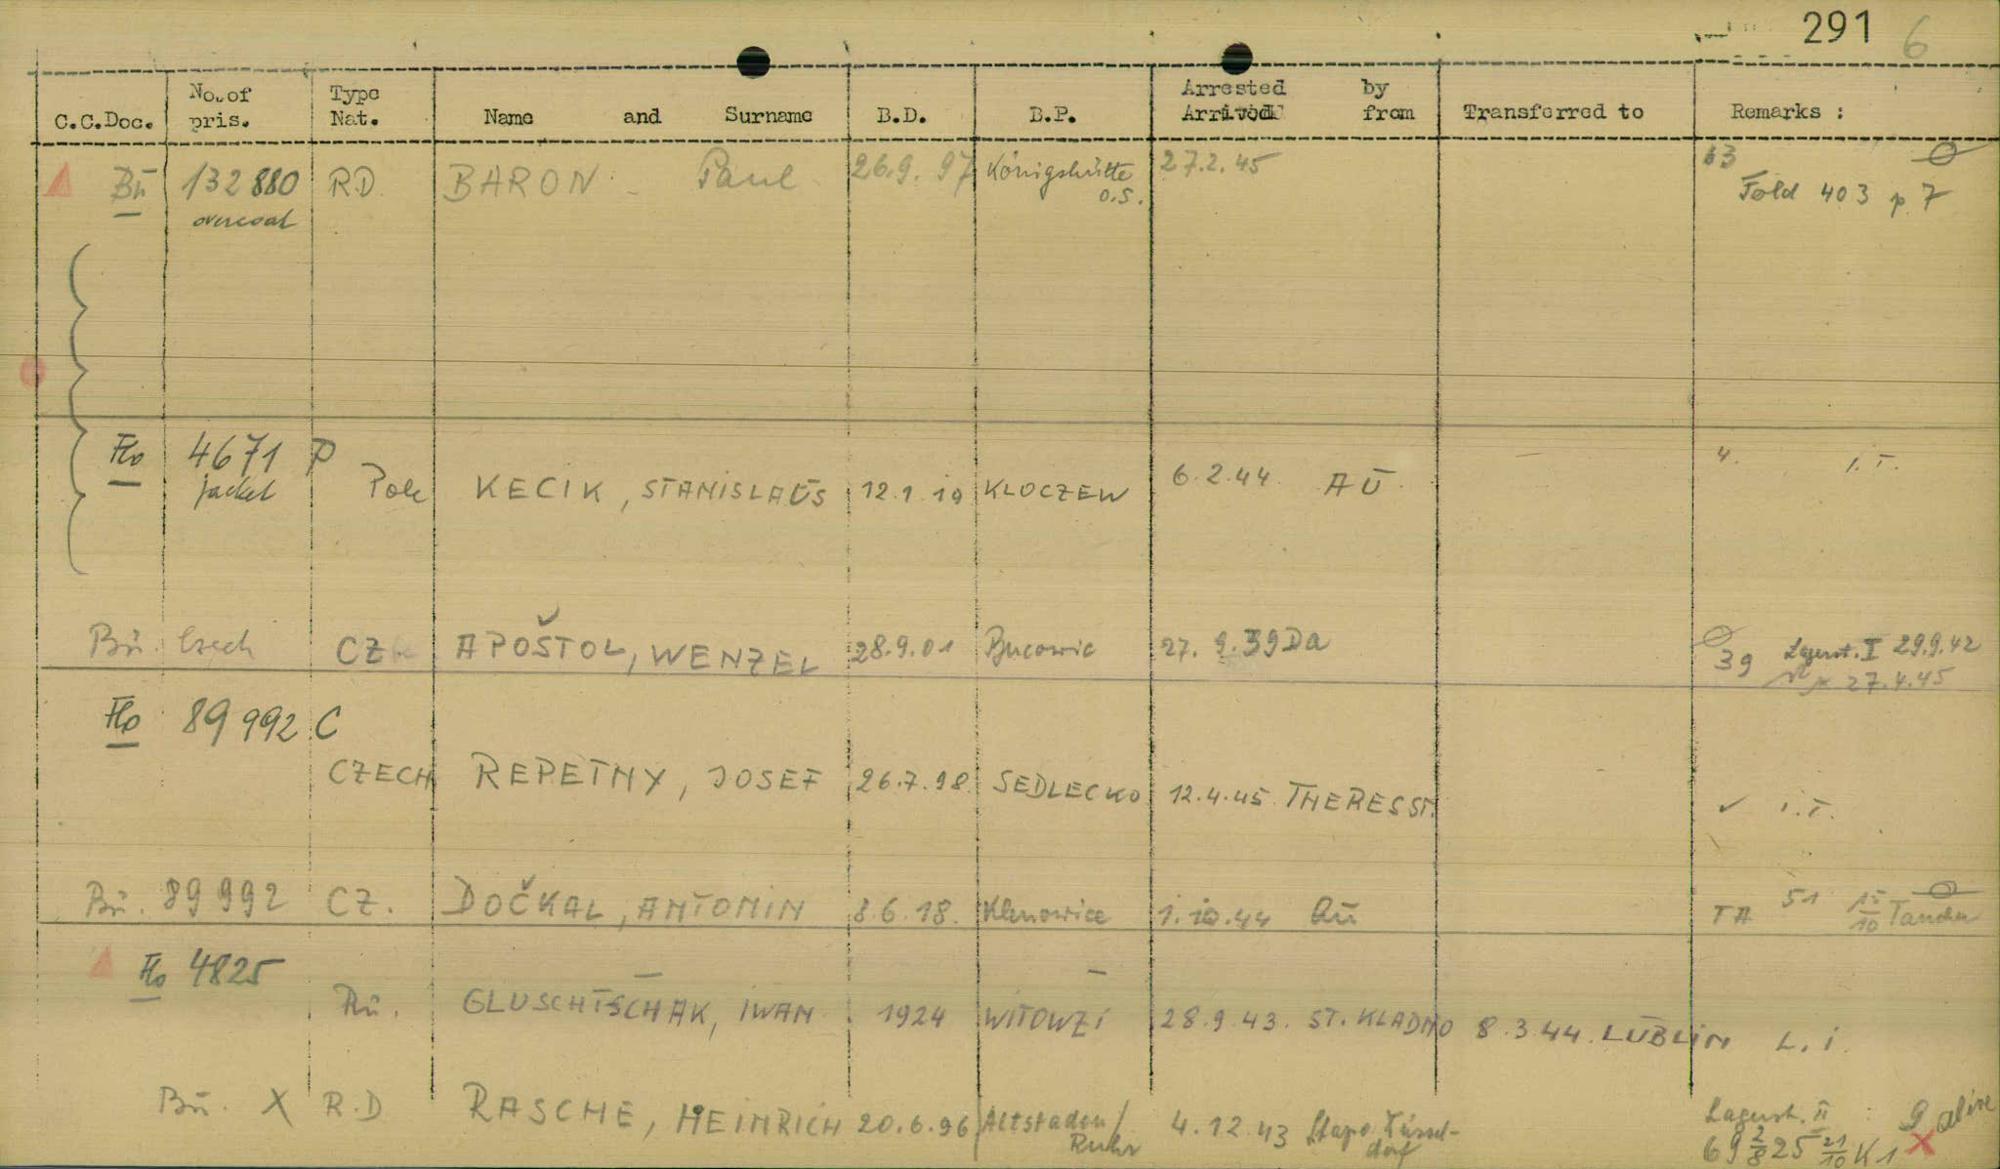 291 6
C.C.Doc. No. of pris. Type Nat. Name and Surname B.D. B.P. Arrested by Arrived from Transferred to Remarks :
Bū 132880 RD BARON - Paul 26.9.97 Königshütte 27.2.45 63
overcoat O.S. Fold 403 p 7
Flo 4671 P 4. I.T.
jacket Pole KECIK, STANISLAUS 12.1.19 KLOCZEW 6.2.44 AŪ -
Bū. Czech CZ APOŠTOL, WENZEL 28.9.01 Bucowic 27.9.39 Da 39 Lagerst. I 29.9.42
27.4.45
Flo 89992 C
CZECH REPETNY, JOSEF 26.7.98 SEDLECKO 12.4.45 THERESST. ✓ I.T.
Bū. 89992 CZ. DOČKAL, ANTONIN 8.6.18. Klenowice 1.10.44 Aū TA 51 15/10 Taucha
Flo 4825 - -
Rū. GLUSCHTSCHAK, IWAN 1924 WITOWZI 28.9.43. ST. KLADNO 8.3.44. LUBLIN L.i.
Bū. X R.D RASCHE, HEINRICH 20.6.96 Altstaden/ 4.12.43 Stapo Düssel- Lagerst. II : 9 alive
Ruhr dorf 69 2/8 25 21/10 K1 X